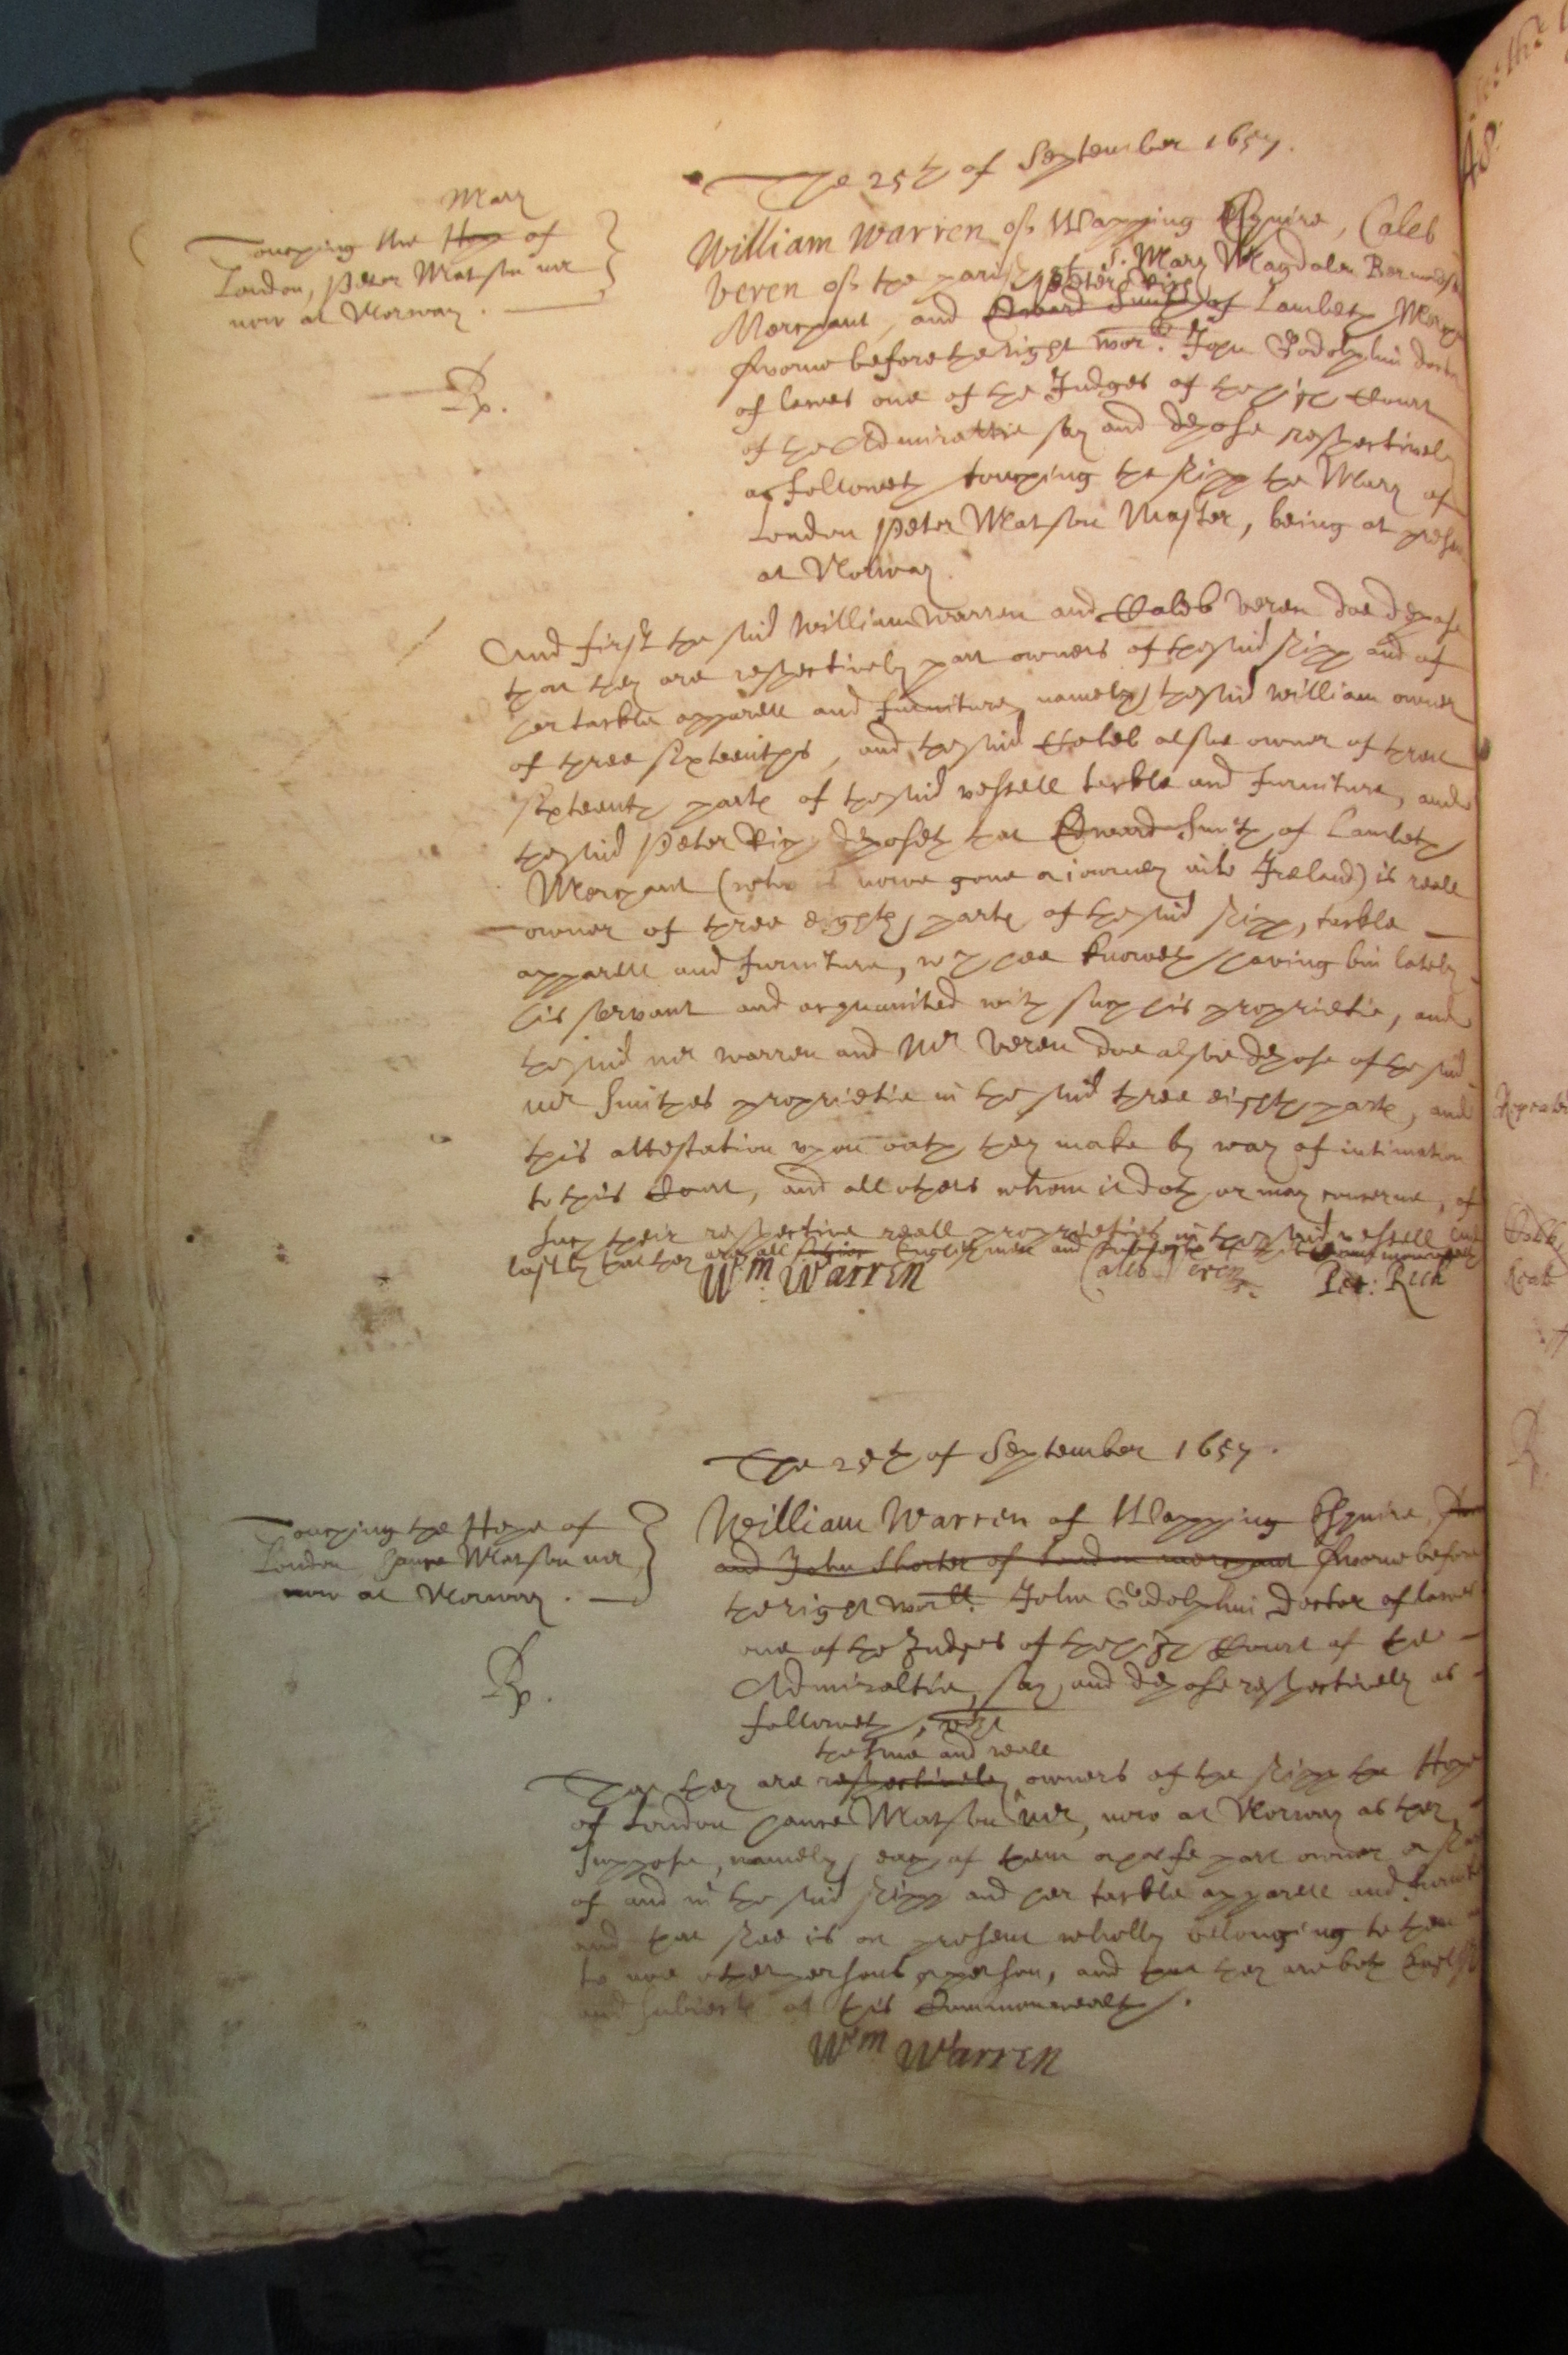 The 25th of September 1657.
Mary
Touching the Hope of
London, Peter Matson mr
now at Norway.
Rp.
William Warren of Wapping Esquire, Caleb
Veren of the parish of St. Mary Magdalen Bermodsey
Peter Rich
Merchant, and Edward Smith of Lambeth Merchant
sworne before the right worll. John Godolphin doctor
of lawes one of the Judges of the high Court
of the Admiraltie say and depose respectively
as followeth touching the shipp the Mary of
London Peter Matson Master, being at present
at Norway.
And first the said William Warren and Caleb Veren doe depose
that they are respectively part owners of the said shipp and of
her tackle apparell and furniture, namely the said William owner
of three sixteenths, and the said Caleb alsoe owner of three
sixteenth parts of the said vessell tackle and furniture, and
the said Peter Rich deposeth that Edward Smith of Lambeth
Merchant (who is nowe gone a iourney into Ireland) is reall
owner of three eighth parts of the said shipp, tackle
apparell and furniture, wch hee knoweth having bin lately
his servant and acquainted with such his proprietie, and
the said mr Warren and Mr Veren doe alsoe depose of the said
mr Smithes proprietie in the said three eighth parts, and
this attestation upon oath they make by way of intimation
to this Court, and all others whom it doth or may concerne, of
such their respective reall proprieties in the said vessell and
lastly that they are all English men and subiects of this Commonwealth
Wm Warren Caleb Veren Pet: Rich
The 25th of September 1657.
Touching the Hope of
London Matson mr
now at Norway.
Rp.
William Warren of Wapping Esquire,
and John Shorter of London merchant sworne before
the right worll. John Godolphin Doctor of lawes
one of the Judges of the high Court of the
Admiraltie, say and depose respectively as
followeth, vizt
the true and reall
That they are respectively owners of the shipp the Hope
of London Matson mr, now at Norway as they
suppose, namely each of them part owner
of and in the said shipp and her tackle apparell and furniture
and that shee is at present wholly belonging to them
to noe other persons or person, and that they are both English
and subiects of this Commonwealth.
Wm Warren